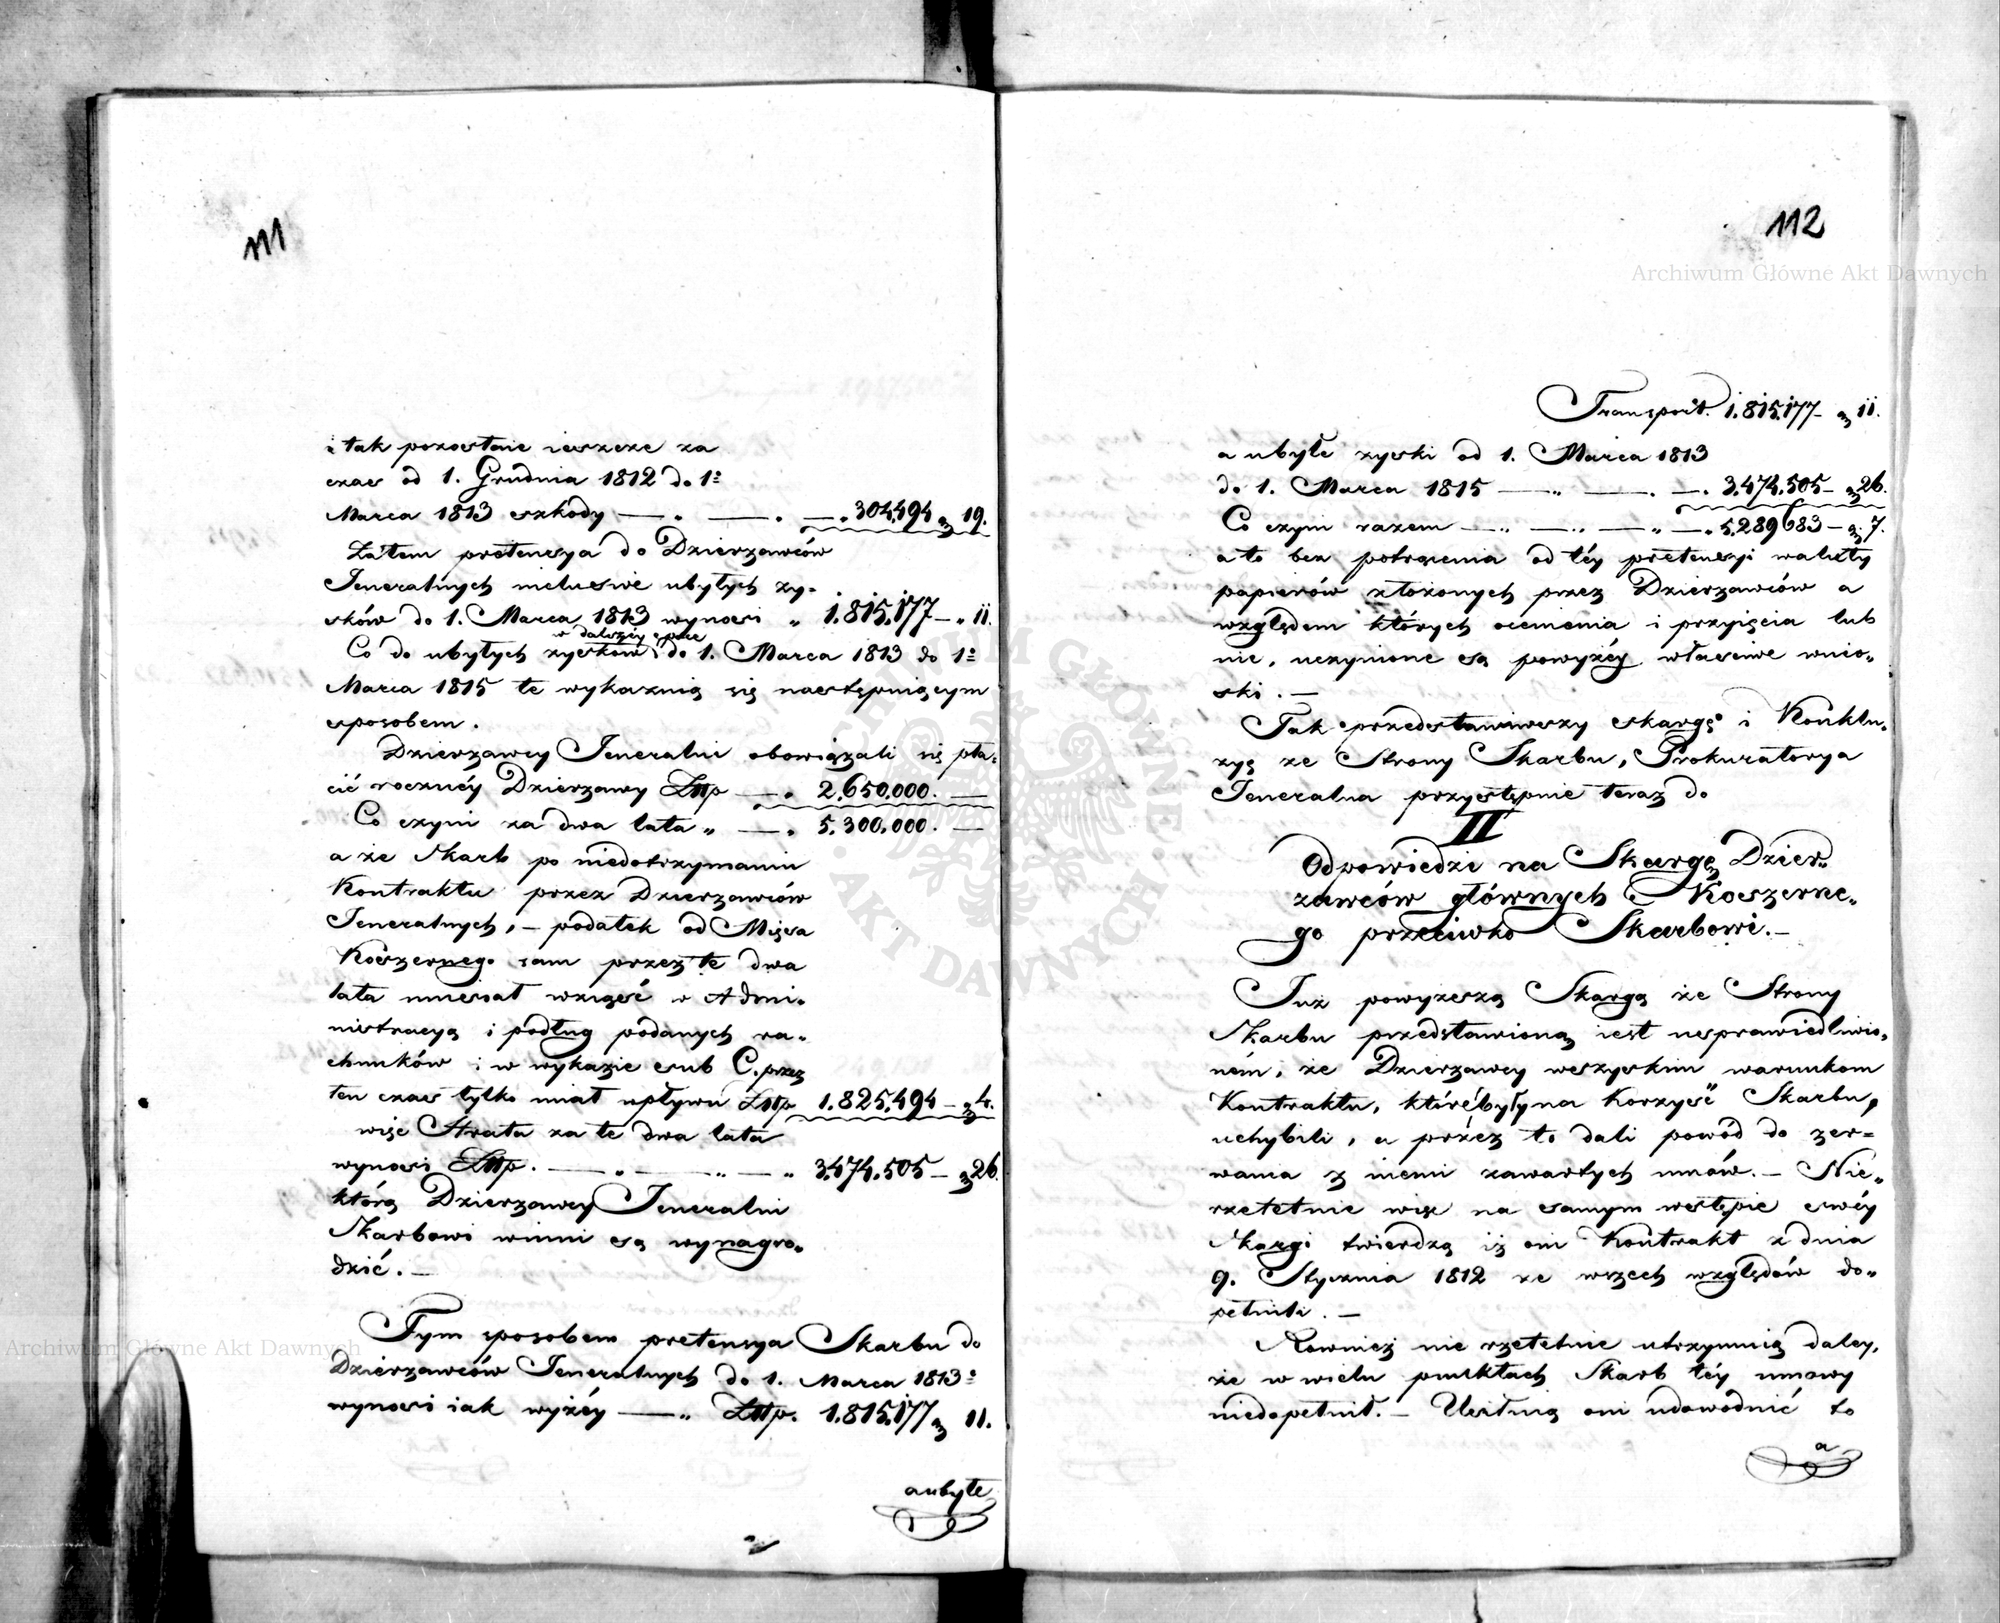 111
i tak pozostaie ieszcze za
czas od 1. Grudnia 1812 do 1º
Marca 1813 szkody — „ — . — „ 304,494 gr 19.
Zatem pretensya do Dzierzawców
Jeneralnych inclusive ubyłych zy„
sków do 1. Marca 1813 wynosi „ 1.815,177 — „ 11.
w dalszéy epoce
Co do ubyłych zysków, do 1. Marca 1813 do 1º
Marca 1815 te wykazuią się następuiącym
sposobem.
Dzierzawcy Jeneralni obowiązali się pła„
cić rocznéy Dzierzawy Złłp — „ 2,650,000. —
Co czyni za dwa lata „ — „ 5,300,000. —
a że Skarb po niedotrzymaniu
Kontraktu przez Dzierzawców
Jeneralnych, — podatek od Mięsa
Koszernego sam przez te dwa
lata musiał wziąść w Admi„
nistracyą i podług podanych ra„
chunków i w wykazie sub C. przez
ten czas tylko miał wpływu Złłp 1.825,494 — gr 4.
więc Strata za te dwa lata
wynosi Złłp. — „ — „ — „ 3,474,505 — gr 26.
którą Dzierzawcy Jeneralni
Skarbowi winni są wynagro„
dzić. —
Tym sposobem pretensya Skarbu do
Dzierzawców Jeneralnych do 1. Marca 1813º
wynosi iak wyżéy — „ Złłp. 1.815,177 gr 11.
a ubyłe
112
Transport. 1.815,177 — gr 11.
a ubyłe zyski od 1. Marca 1813
do 1. Marca 1815 — „ — . — . 3,474,505 — gr 26.
Co czyni razem — „ — „ — „ — „ 5,289,683 — gr. 7.
a to bez potrącenia od téy pretensyi waluty
papierów złożonych przez Dzierzawców a
względem których ocenienia i przyięcia lub
nie, uczynione są powyżéy właściwe wnio„
ski. —
Tak przedstawiwszy skargę i Konklu„
zyę ze Strony Skarbu, Prokuratorya
Jeneralna przystępuie teraz do
II
Odpowiedzi na Skargę Dzier„
zawców głównych Koszerne„
go przeciwko Skarbowi. —
Już powyższą Skargą ze Strony
Skarbu przedstawioną iest usprawiedliwio„
ném, że Dzierzawcy wszyskim warunkom
Kontraktu, które były na korzyść Skarbu,
uchybili, a przéz to dali powód do zer„
wania z niemi zawartych umów. — Nie„
rzetelnie więc na samym wstępie swéy
Skargi twierdzą iż oni Kontrakt z dnia
9. Stycznia 1812 ze wszech względów do„
pełnili. —
Rownież nie rzetelnie utrzymuią daley,
że w wielu punktach Skarb téy umowy
niedopełnił. — Usiłuią oni udowodnić to
a
Archiwum Główne Akt Dawnych
Archiwum Główne Akt Dawnych